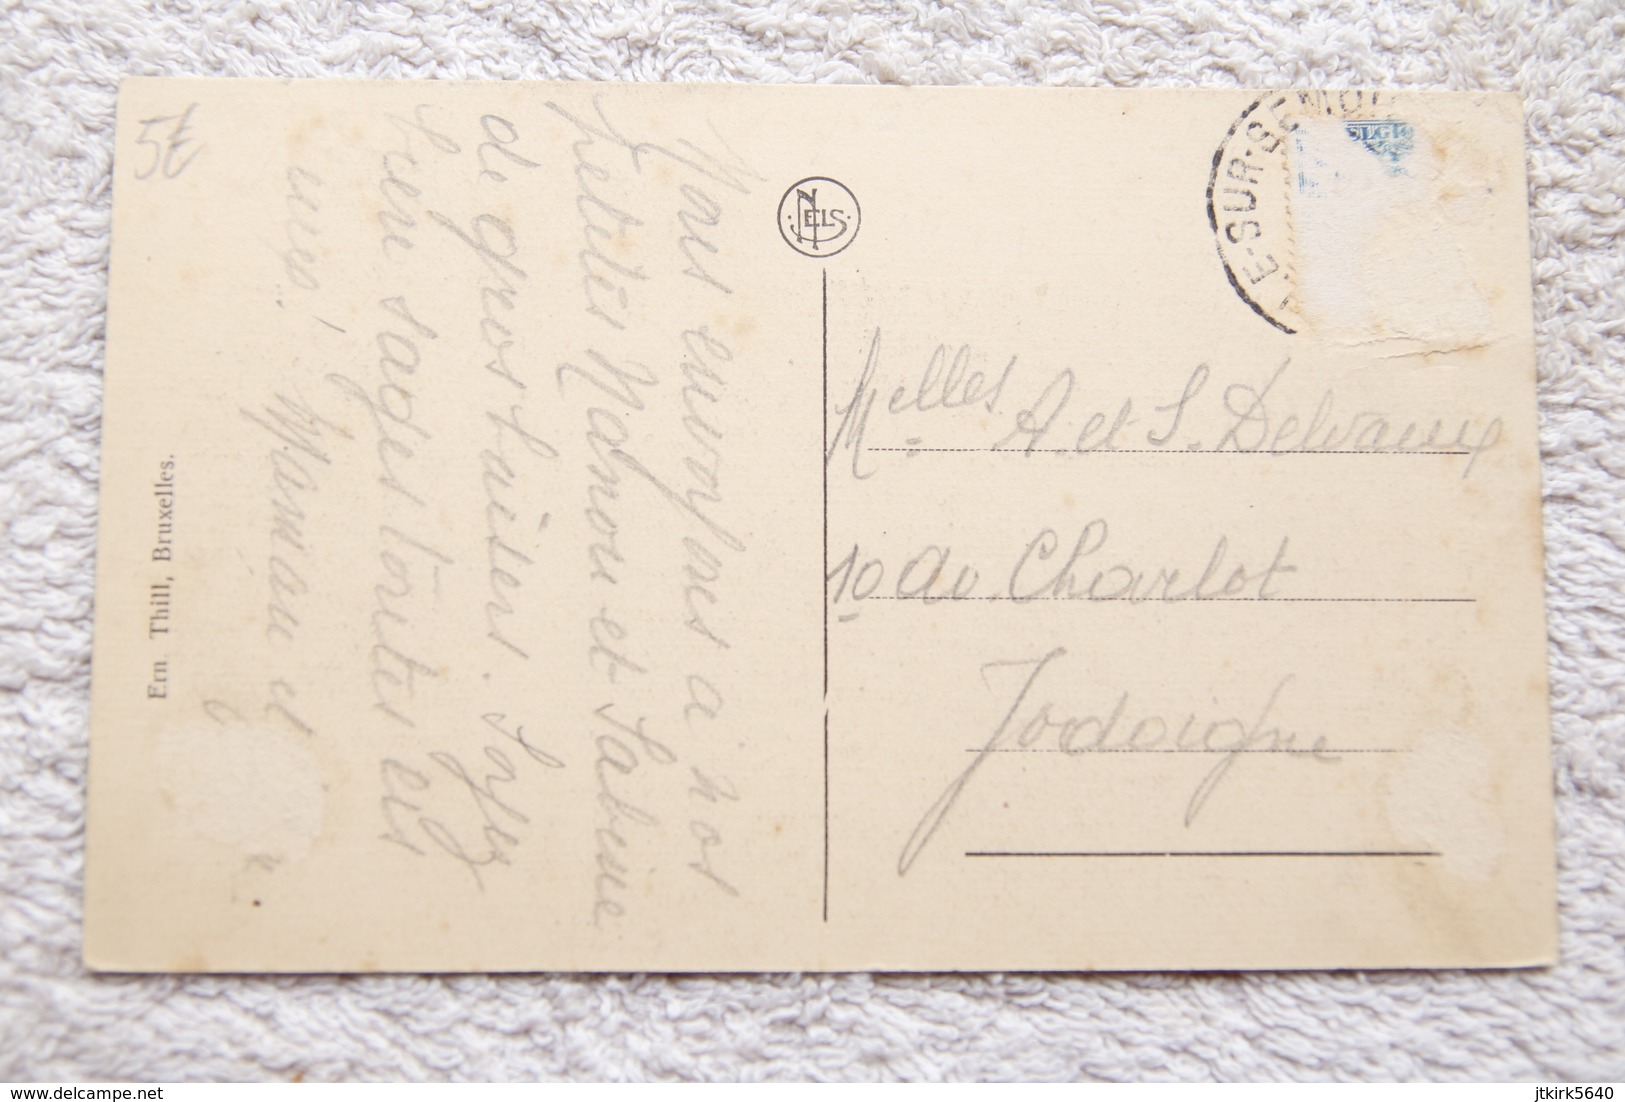 5€
Nous envoyons a nos
petites Manou et Sabine
de gros baisers. Soyez
bien sages toutes les
Maman et
Ern. Thill, Bruxelles.
NELS
E-SUR-SEMOI
Melles A. et S. Delvaux
10 av. Charlot
Jodoigne
www.delcampe.net
jtkirk5640